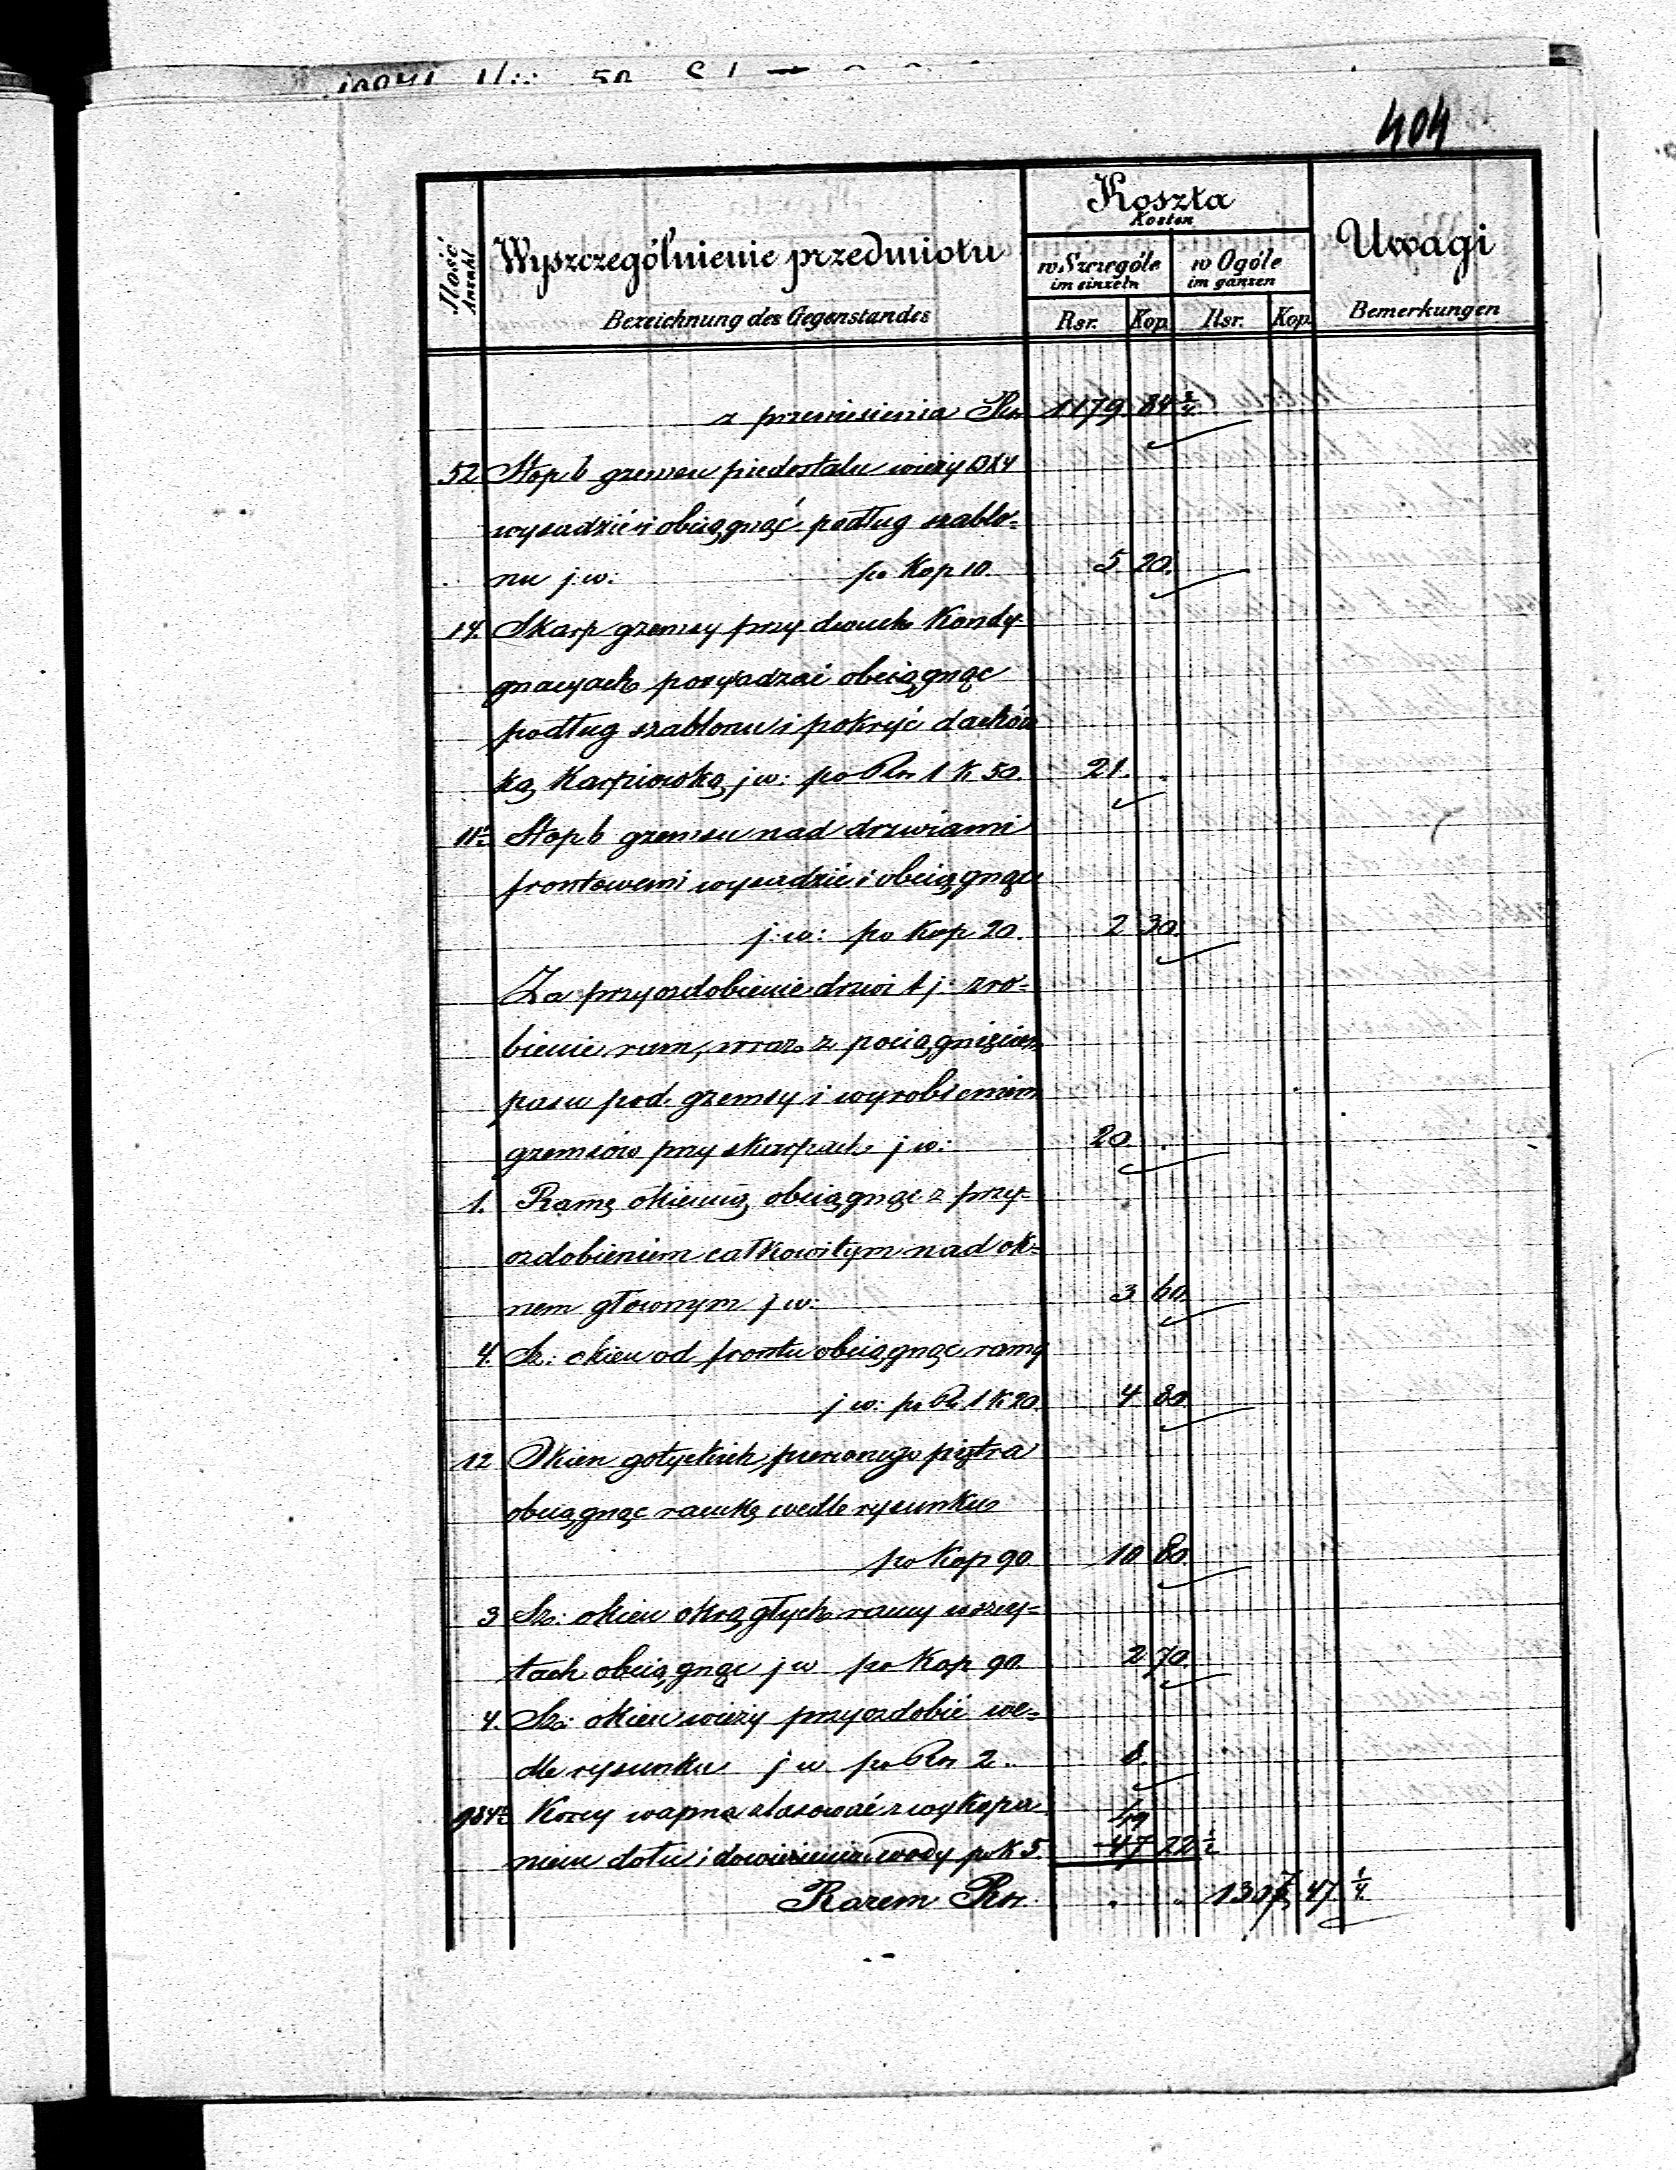 404
Ilość
Anzahl
Wyszczególnienie przedmiotu
Bezeichnung des Gegenstandes
Koszta
Kosten
w Szczególe
im einzeln
w Ogóle
im ganzen
Rsr. Kop. Rsr. Kop.
Uwagi
Bemerkungen
z przeniesienia Rsr 1179 84 3/4
52 Stop b gzemsu piedestalu wieży 13X4
wysadzić i obciągnąć podług szablo=
nu j.w: po Kop 10. 5 20.
14. Skarp gzemsy przy dwuch Kondy
gnacyach powysadzać obciągnąc
podług szablonu i pokryć dachów
ką Karpiowską j w: po Rsr 1 K 50. 21. .
11 1/2 Stop b gzemsu nad drzwiami
frontowemi wysadzić i obciągnąc
j: w: po Kop 20. 2 30.
Za przyozdobienie drzwi t j: zro=
bienie ram, wraz z pociągnięciem
pasu pod gzemsy i wyrobieniem
gzemsów przy skarpach j w: 20 .
1. Ramę okienną obciągnąc z przy=
ozdobieniem całkowitym nad ok=
nem głownym j w: 3 60.
4. Sz: okien od frontu obciągnąc ramy
j w: po Rs 1 K 20. 4 80
12 Okien gotyckich pierwszego piętra
obciągnąc ramką wedle rysunku
po Kop 90 10 80.
3 Sz: okien okrągłych ramy w szczy=
tach obciągnąc j w po Kop 90. 2 70.
4. Sz: okien wieży przyozdobić we=
dle rysunku j w po Rsr 2. 8.
984 1/2 Korcy wapna zlasować z wykopa=
niem dołu i dowiezienia wody po K 5. 49
47 22 1/2
Razem Rsr. . . 1307 47 1/4